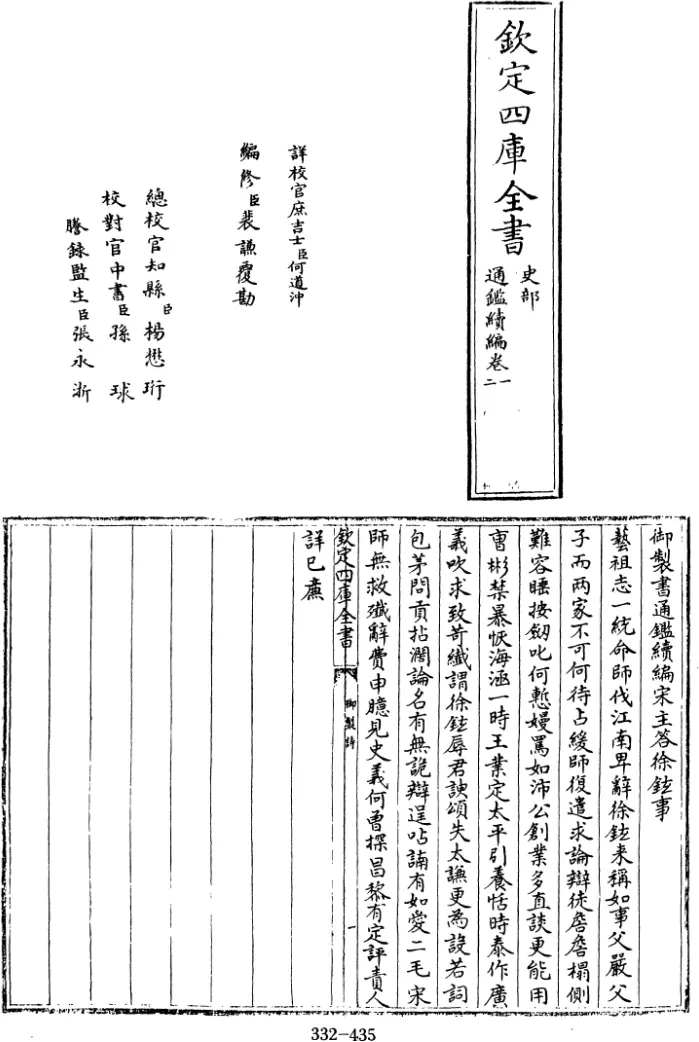 欽定四庫全書
史部
通鑑續編卷一二
詳校官庶吉士臣何道沖
編修臣裴謙覆勘
總校官知縣臣楊懋珩
校對官中書臣孫球
謄録監生臣張永浙
御製書通鑑續編宋主答徐鉉事
藝祖志一統命師伐江南卑辭徐鉉来稱如事父嚴父
子而两家不可何待占緩師復遣求論辯徒詹詹榻側
難容睡按劒叱何慙嫚罵如沛公創業多直談更能用
曺彬禁暴恢海涵一時王業定太平引養恬時泰作廣
義吹求致苛纎謂徐鉉辱君諛頌失太謙更為設若詞
包茅問貢拈濶論名有無詭辯逞呫諵有如愛二毛宋
師無救殱辭費申臆見史義何曽探昌黎有定評責人
欽定四庫全書
御製詩
一
詳已亷
332-435